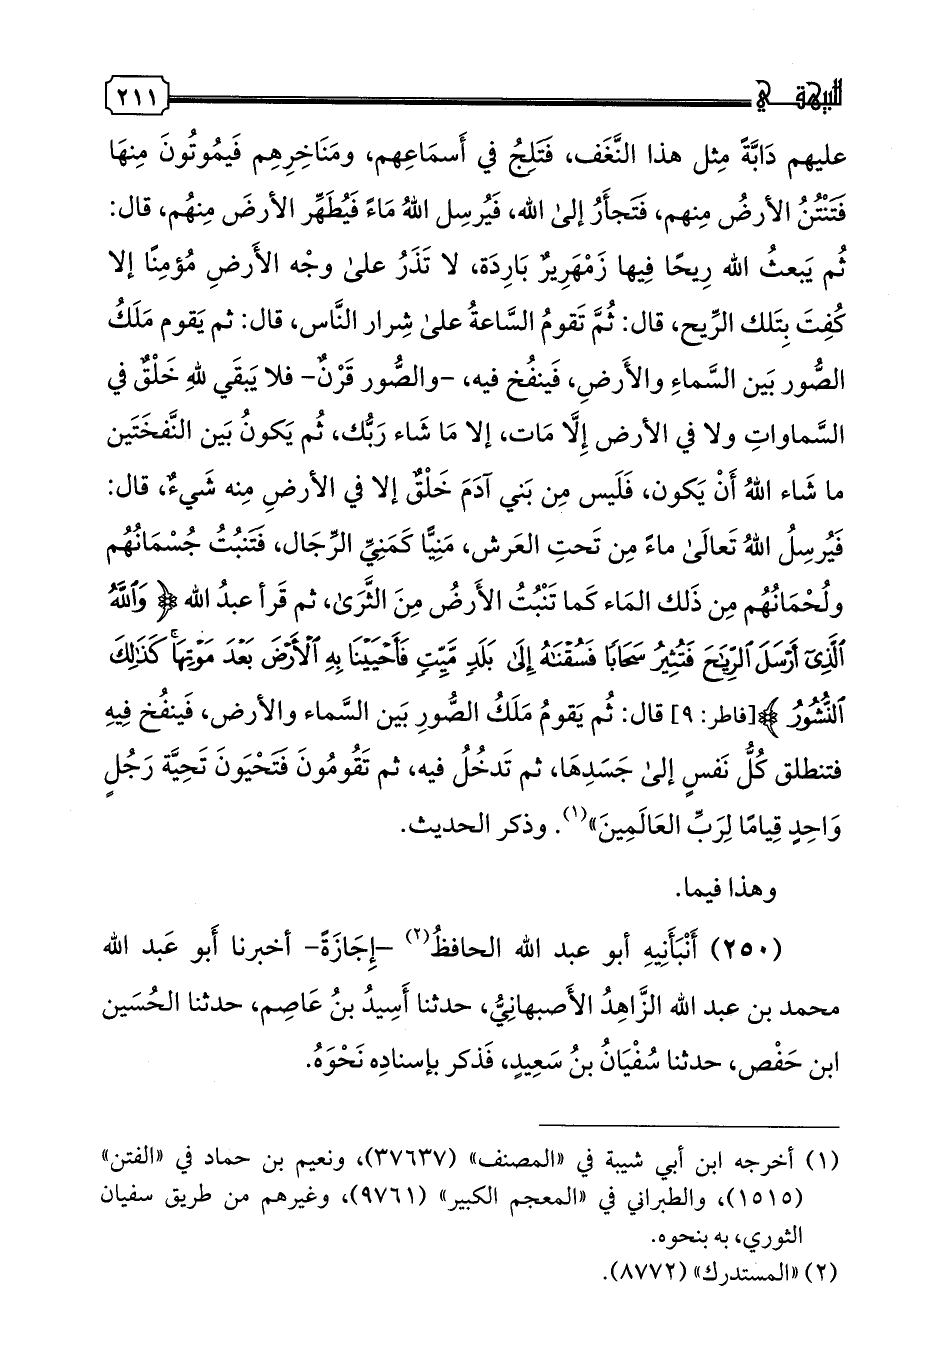 للبيهقي ٢١١
عليهم دَابَّةً مِثل هذا النَّغَف، فَتَلِجُ في أَسمَاعِهم، ومَنَاخِرِهِم فَيمُوتُونَ مِنهَا
فَتَنْتُنُ الأرضُ مِنهم، فَتَجأَرُ إلىٰ الله، فَيُرسِل اللهُ مَاءً فَيُطَهِّر الأرضَ مِنهُم، قال:
ثُم يَبعثُ الله رِيحًا فِيها زَمْهَرِيرٌ بَارِدَة، لا تَذَرُ علىٰ وجْه الأرضِ مُؤمِنًا إلا
كُفِتَ بِتَلك الرِّيح، قال: ثُمَّ تَقومُ السَّاعةُ علىٰ شِرار النَّاس، قال: ثم يَقوم مَلَكُ
الصُّور بَين السَّماءِ والأَرضِ، فَينفُخ فيه، -والصُّور قَرْنٌ- فلا يَبقَي للهِ خَلْقٌ في
السَّماواتِ ولا في الأرض إِلَّا مَات، إلا مَا شاء رَبُّك، ثُم يَكونُ بَين النَّفخَتَين
ما شَاء اللهُ أَنْ يَكون، فَلَيس مِن بَني آدَمَ خَلْقٌ إلا في الأرضِ مِنه شَيءٌ، قال:
فَيُرسِلُ اللهُ تَعالَىٰ ماءً مِن تَحتِ العَرش، مَنِيًّا كَمَنِيِّ الرِّجَال، فَتَنبُتُ جُسْمَانُهُم
ولُحْمَانُهُم مِن ذَلك المَاء كَما تَنْبُتُ الأرضُ مِنَ الثَّرَىٰ، ثم قَرأ عبدُ الله ﴿ وَٱللَّهُ
ٱلَّذِىٓ أَرْسَلَ ٱلرِّيَٰحَ فَتُثِيرُ سَحَابًا فَسُقْنَٰهُ إِلَىٰ بَلَدٍ مَّيِّتٍ فَأَحْيَيْنَا بِهِ ٱلْأَرْضَ بَعْدَ مَوْتِهَا ۚ كَذَٰلِكَ
ٱلنُّشُورُ ﴾[فاطر: ٩] قال: ثُم يَقومُ مَلَكُ الصُّورِ بَين السَّماء والأرض، فَينفُخ فِيهِ
فتنطلق كُلُّ نَفسٍ إلىٰ جَسَدِهَا، ثم تَدخُلُ فيه، ثم تَقُومُونَ فَتَحْيَونَ تَحِيَّة رَجُلٍ
وَاحِدٍ قِيامًا لِرَبِّ العَالَمِينَ»(١). وذكر الحديث.
وهذا فيما.
(٢٥٠) أَنْبَأَنِيهِ أبو عبد الله الحافظُ(٢) -إِجَازَةً- أخبرنا أَبو عَبد الله
محمد بن عبد الله الزَّاهِدُ الأَصبهانِيُّ، حدثنا أَسِيدُ بنُ عَاصِم، حدثنا الحُسَين
ابن حَفْص، حدثنا سُفْيَانُ بنُ سَعِيدٍ، فَذكر بإسنادِه نَحْوَهُ.
(١) أخرجه ابن أبي شيبة في «المصنف» (٣٧٦٣٧)، ونعيم بن حماد في «الفتن»
(١٥١٥)، والطبراني في «المعجم الكبير» (٩٧٦١)، وغيرهم من طريق سفيان
الثوري، به بنحوه.
(٢) «المستدرك» (٨٧٧٢).